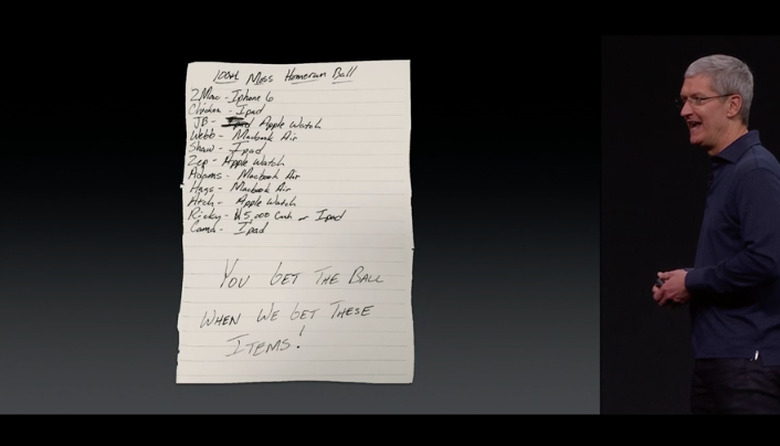 100th Moss Homerun Ball
ZMac - Iphone 6
Chicken - Ipad
JB - Ipad Apple Watch
Webb - Macbook Air
Shaw - Ipad
Zep - Apple Watch
Adams - Macbook Air
Hags - Macbook Air
Htch - Apple Watch
Ricky - $5,000 Cash or Ipad
Cam - Ipad
YOU GET THE BALL
WHEN WE GET THESE
ITEMS!